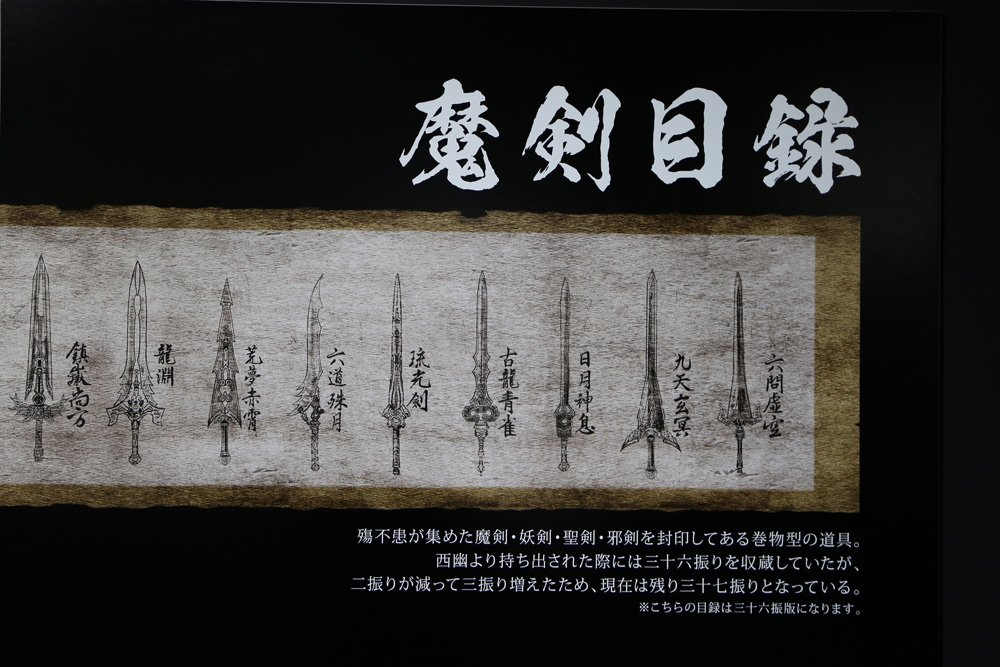 魔剣目録
六問虚空
九天玄冥
日月神息
古龍青雀
琉光劍
六道殊月
荒夢赤霄
龍淵
鎮嶽尚方
殤不患が集めた魔剣・妖剣・聖剣・邪剣を封印してある巻物型の道具。
西幽より持ち出された際には三十六振りを収蔵していたが、
二振りが減って三振り増えたため、現在は残り三十七振りとなっている。
※こちらの目録は三十六振版になります。